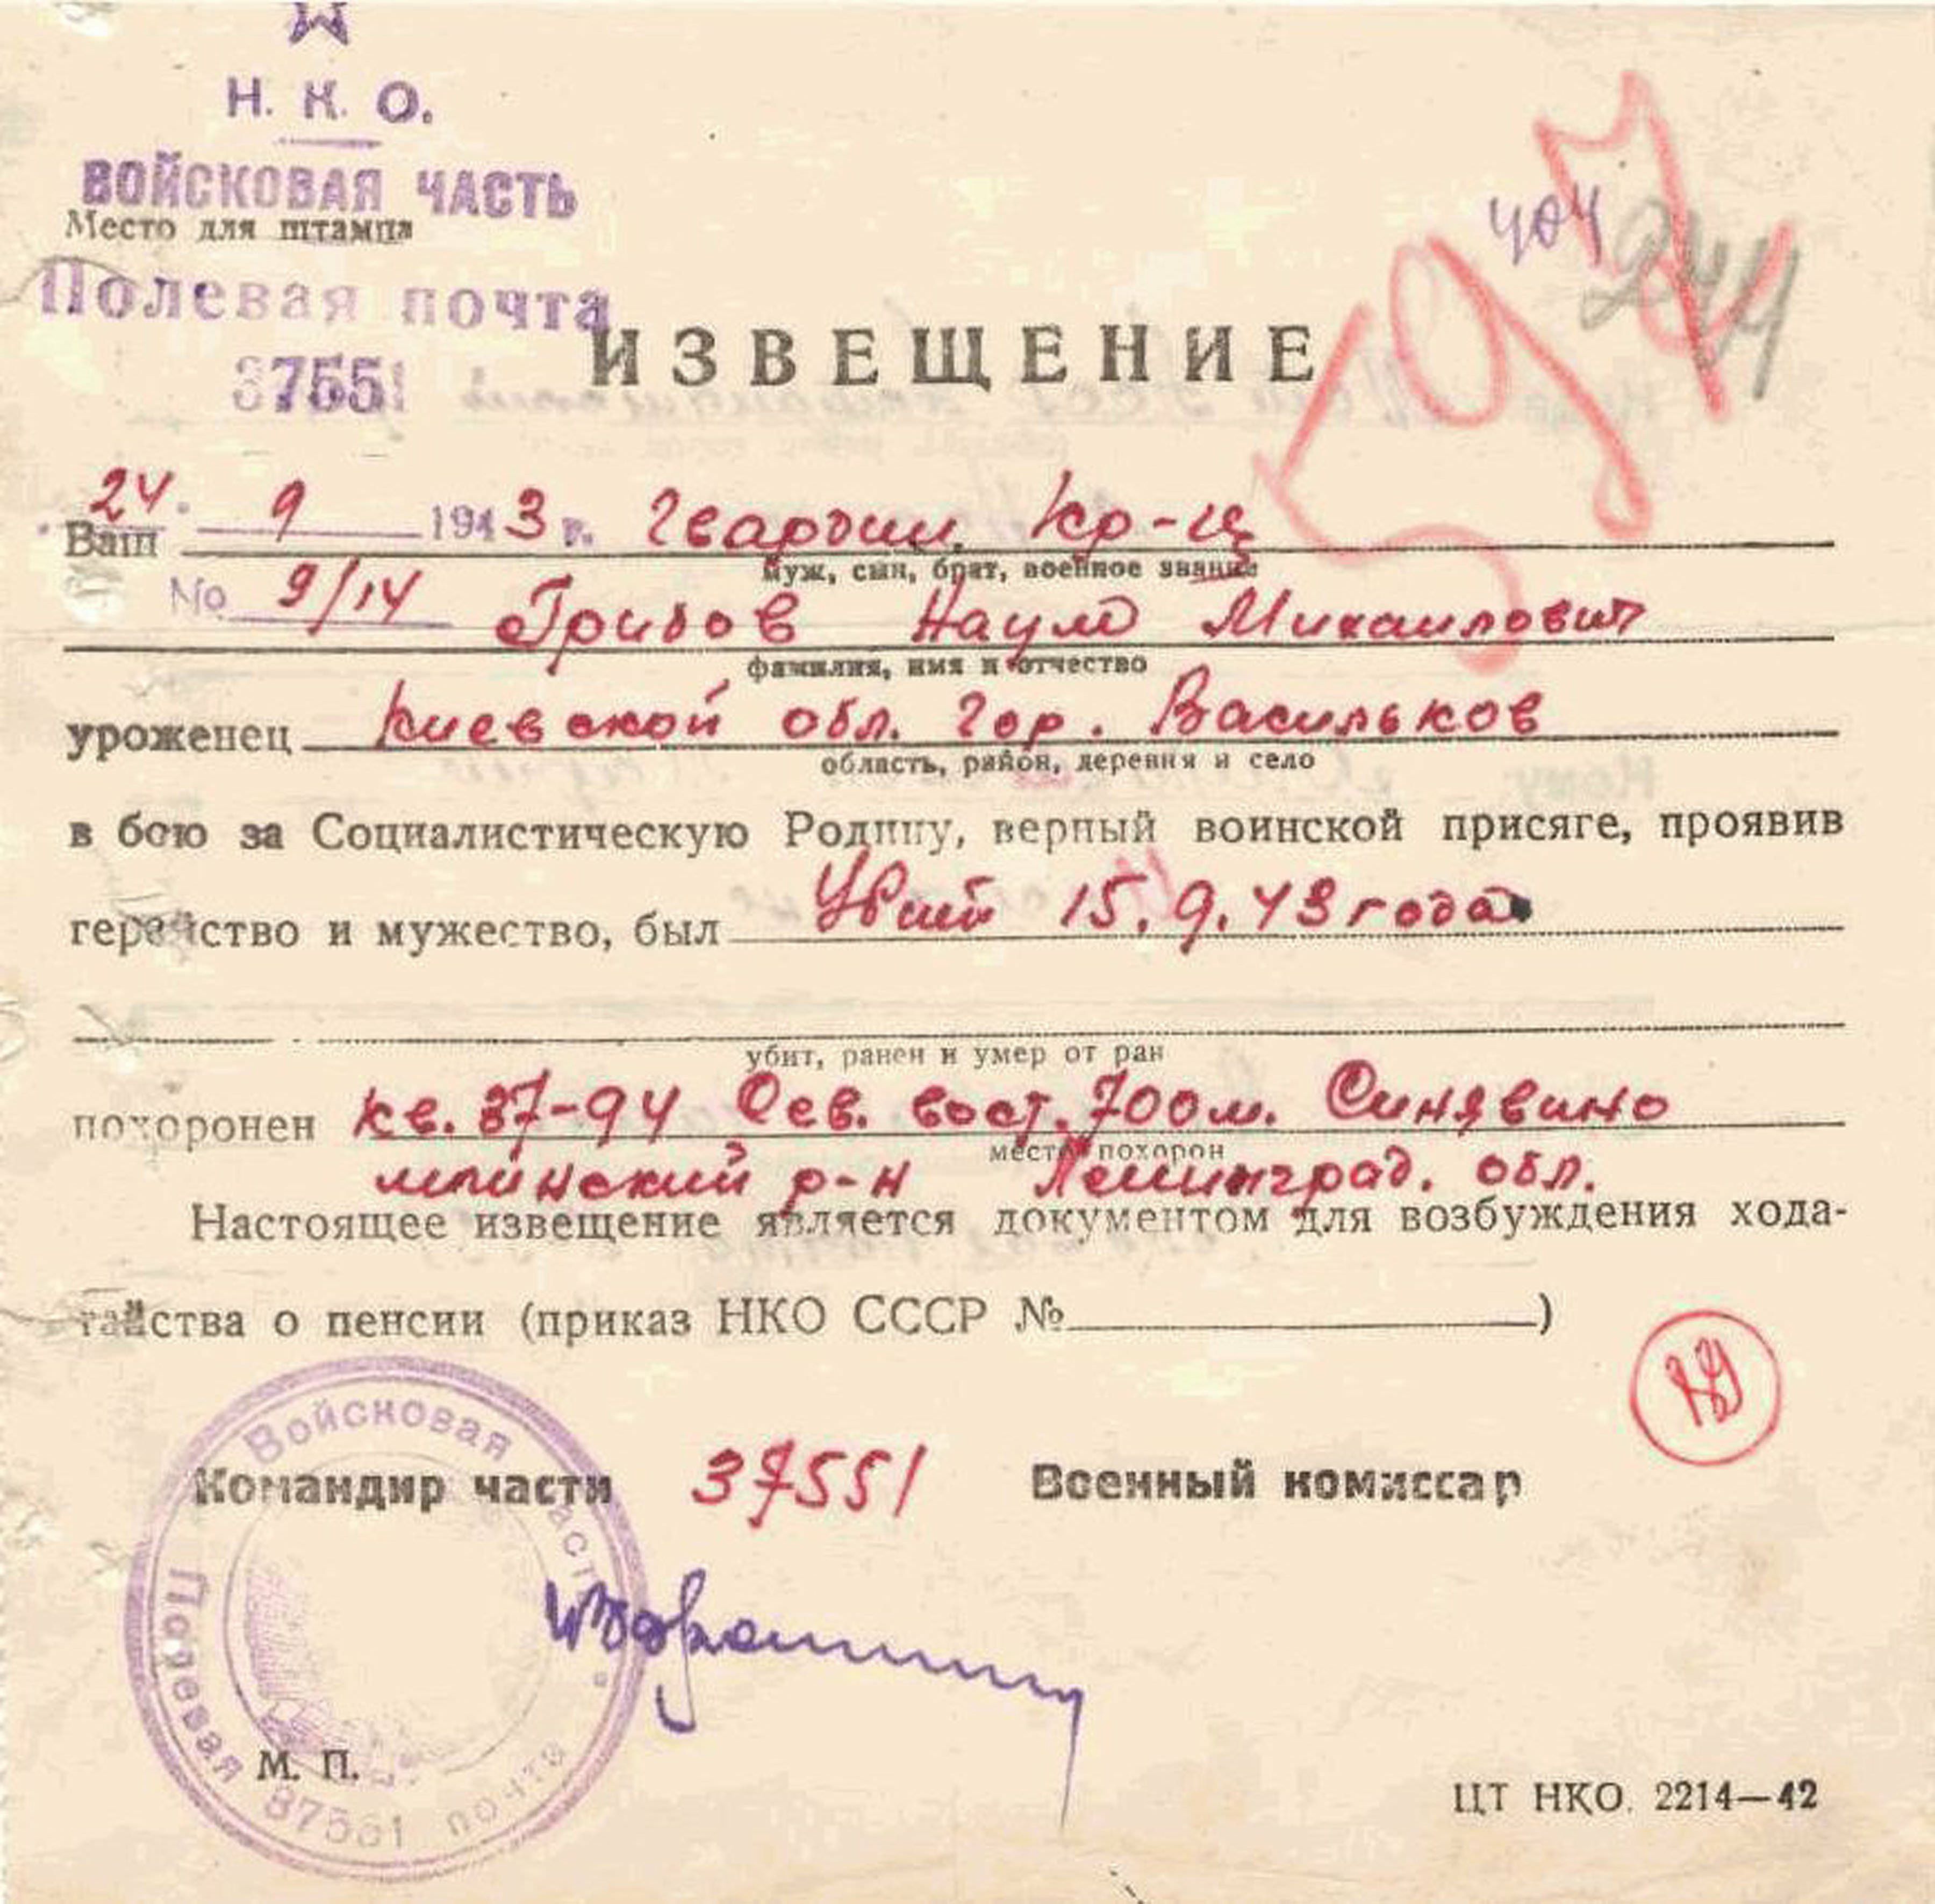 Н. К. О.
ВОЙСКОВАЯ ЧАСТЬ
Место для штампа
Полевая почта
37551
404
244
ИЗВЕЩЕНИЕ
24. 9 1943 г. Гвардии Кр-ц
Ваш
муж, сын, брат, военное звание
No 9/14 Грибов Наум Михаилович
фамилия, имя и отчество
уроженец Киевской обл. гор. Васильков
область, район, деревня и село
в бою за Социалистическую Родину, верный воинской присяге, проявив
геройство и мужество, был Убит 15.9.43 года
убит, ранен и умер от ран
похоронен кв. 37-94 Сев. вост. 700 м. Синявино
место похорон
мгинский р-н Ленинград. обл.
Настоящее извещение является документом для возбуждения хода-
тайства о пенсии (приказ НКО СССР № )
Командир части 37551 Военный комиссар
Войсковая часть
Полевая почта
М. П.
ЦТ НКО. 2214—42